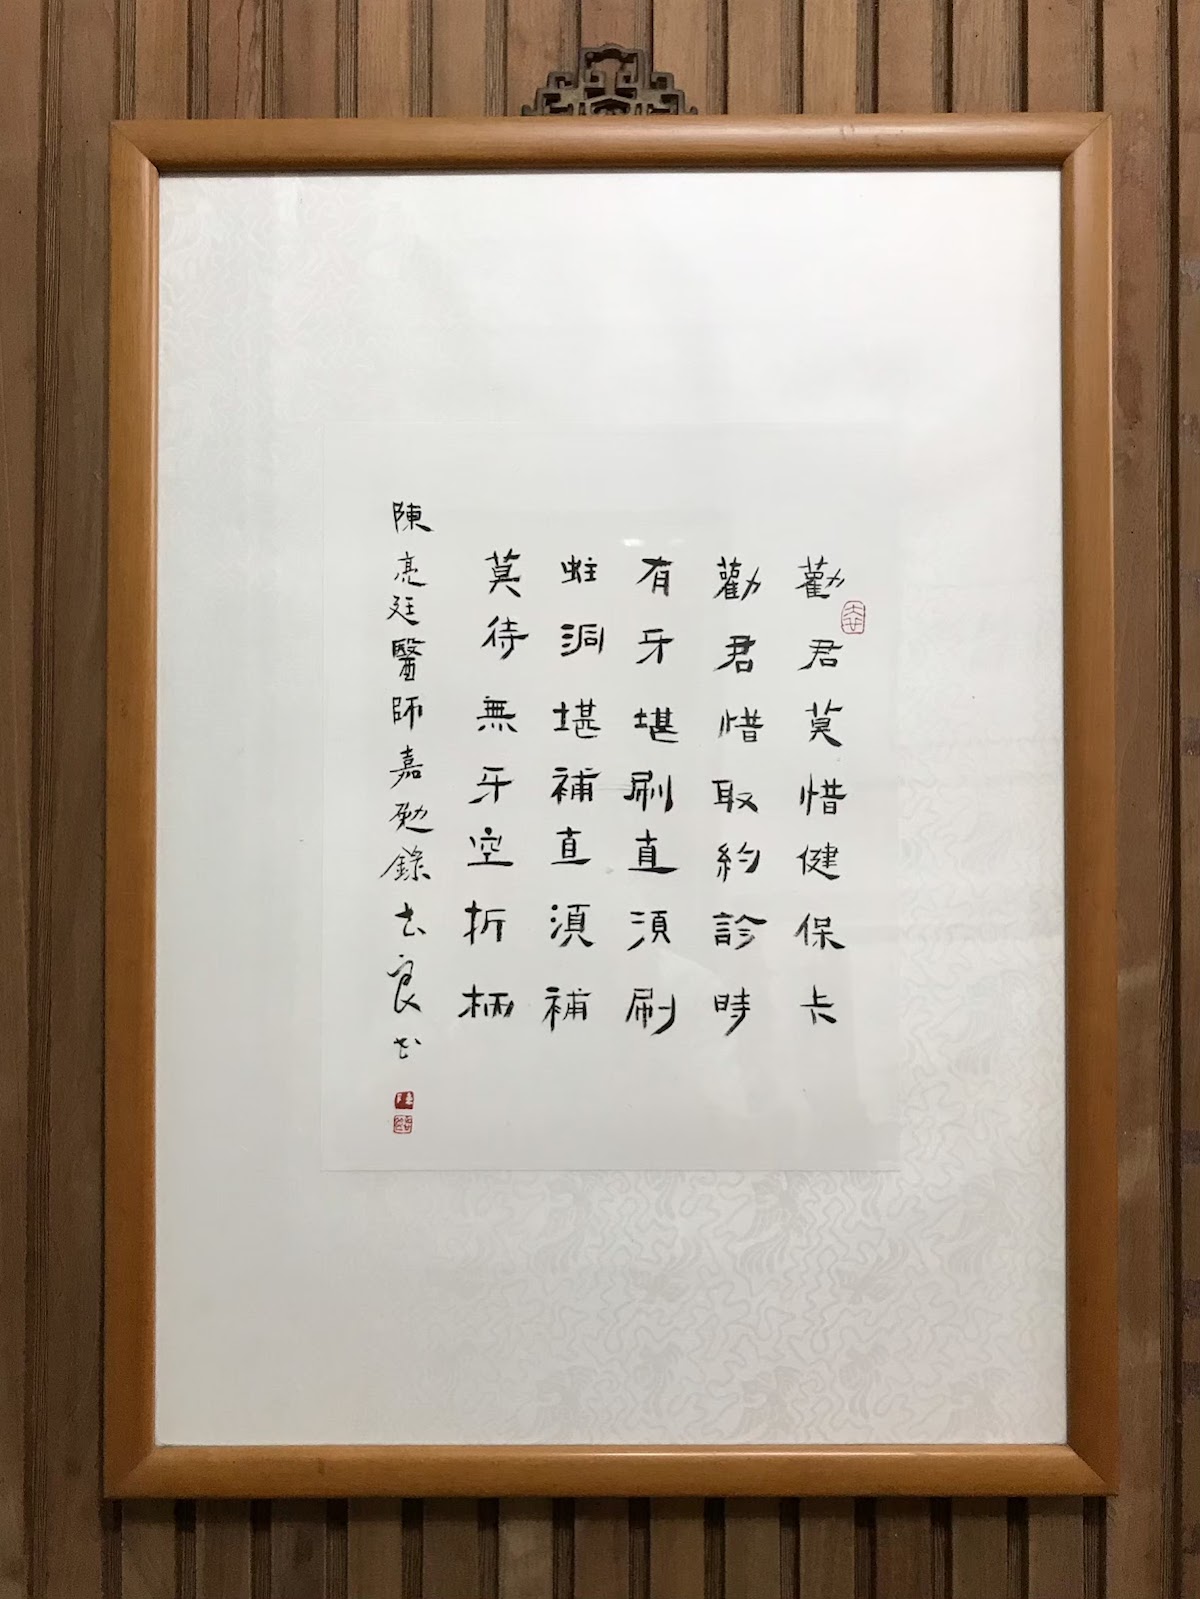 勸君莫惜健保卡
勸君惜取約診時
有牙堪刷直須刷
蛀洞堪補直須補
莫待無牙空折柄
陳亮廷醫師嘉勉錄 士良书